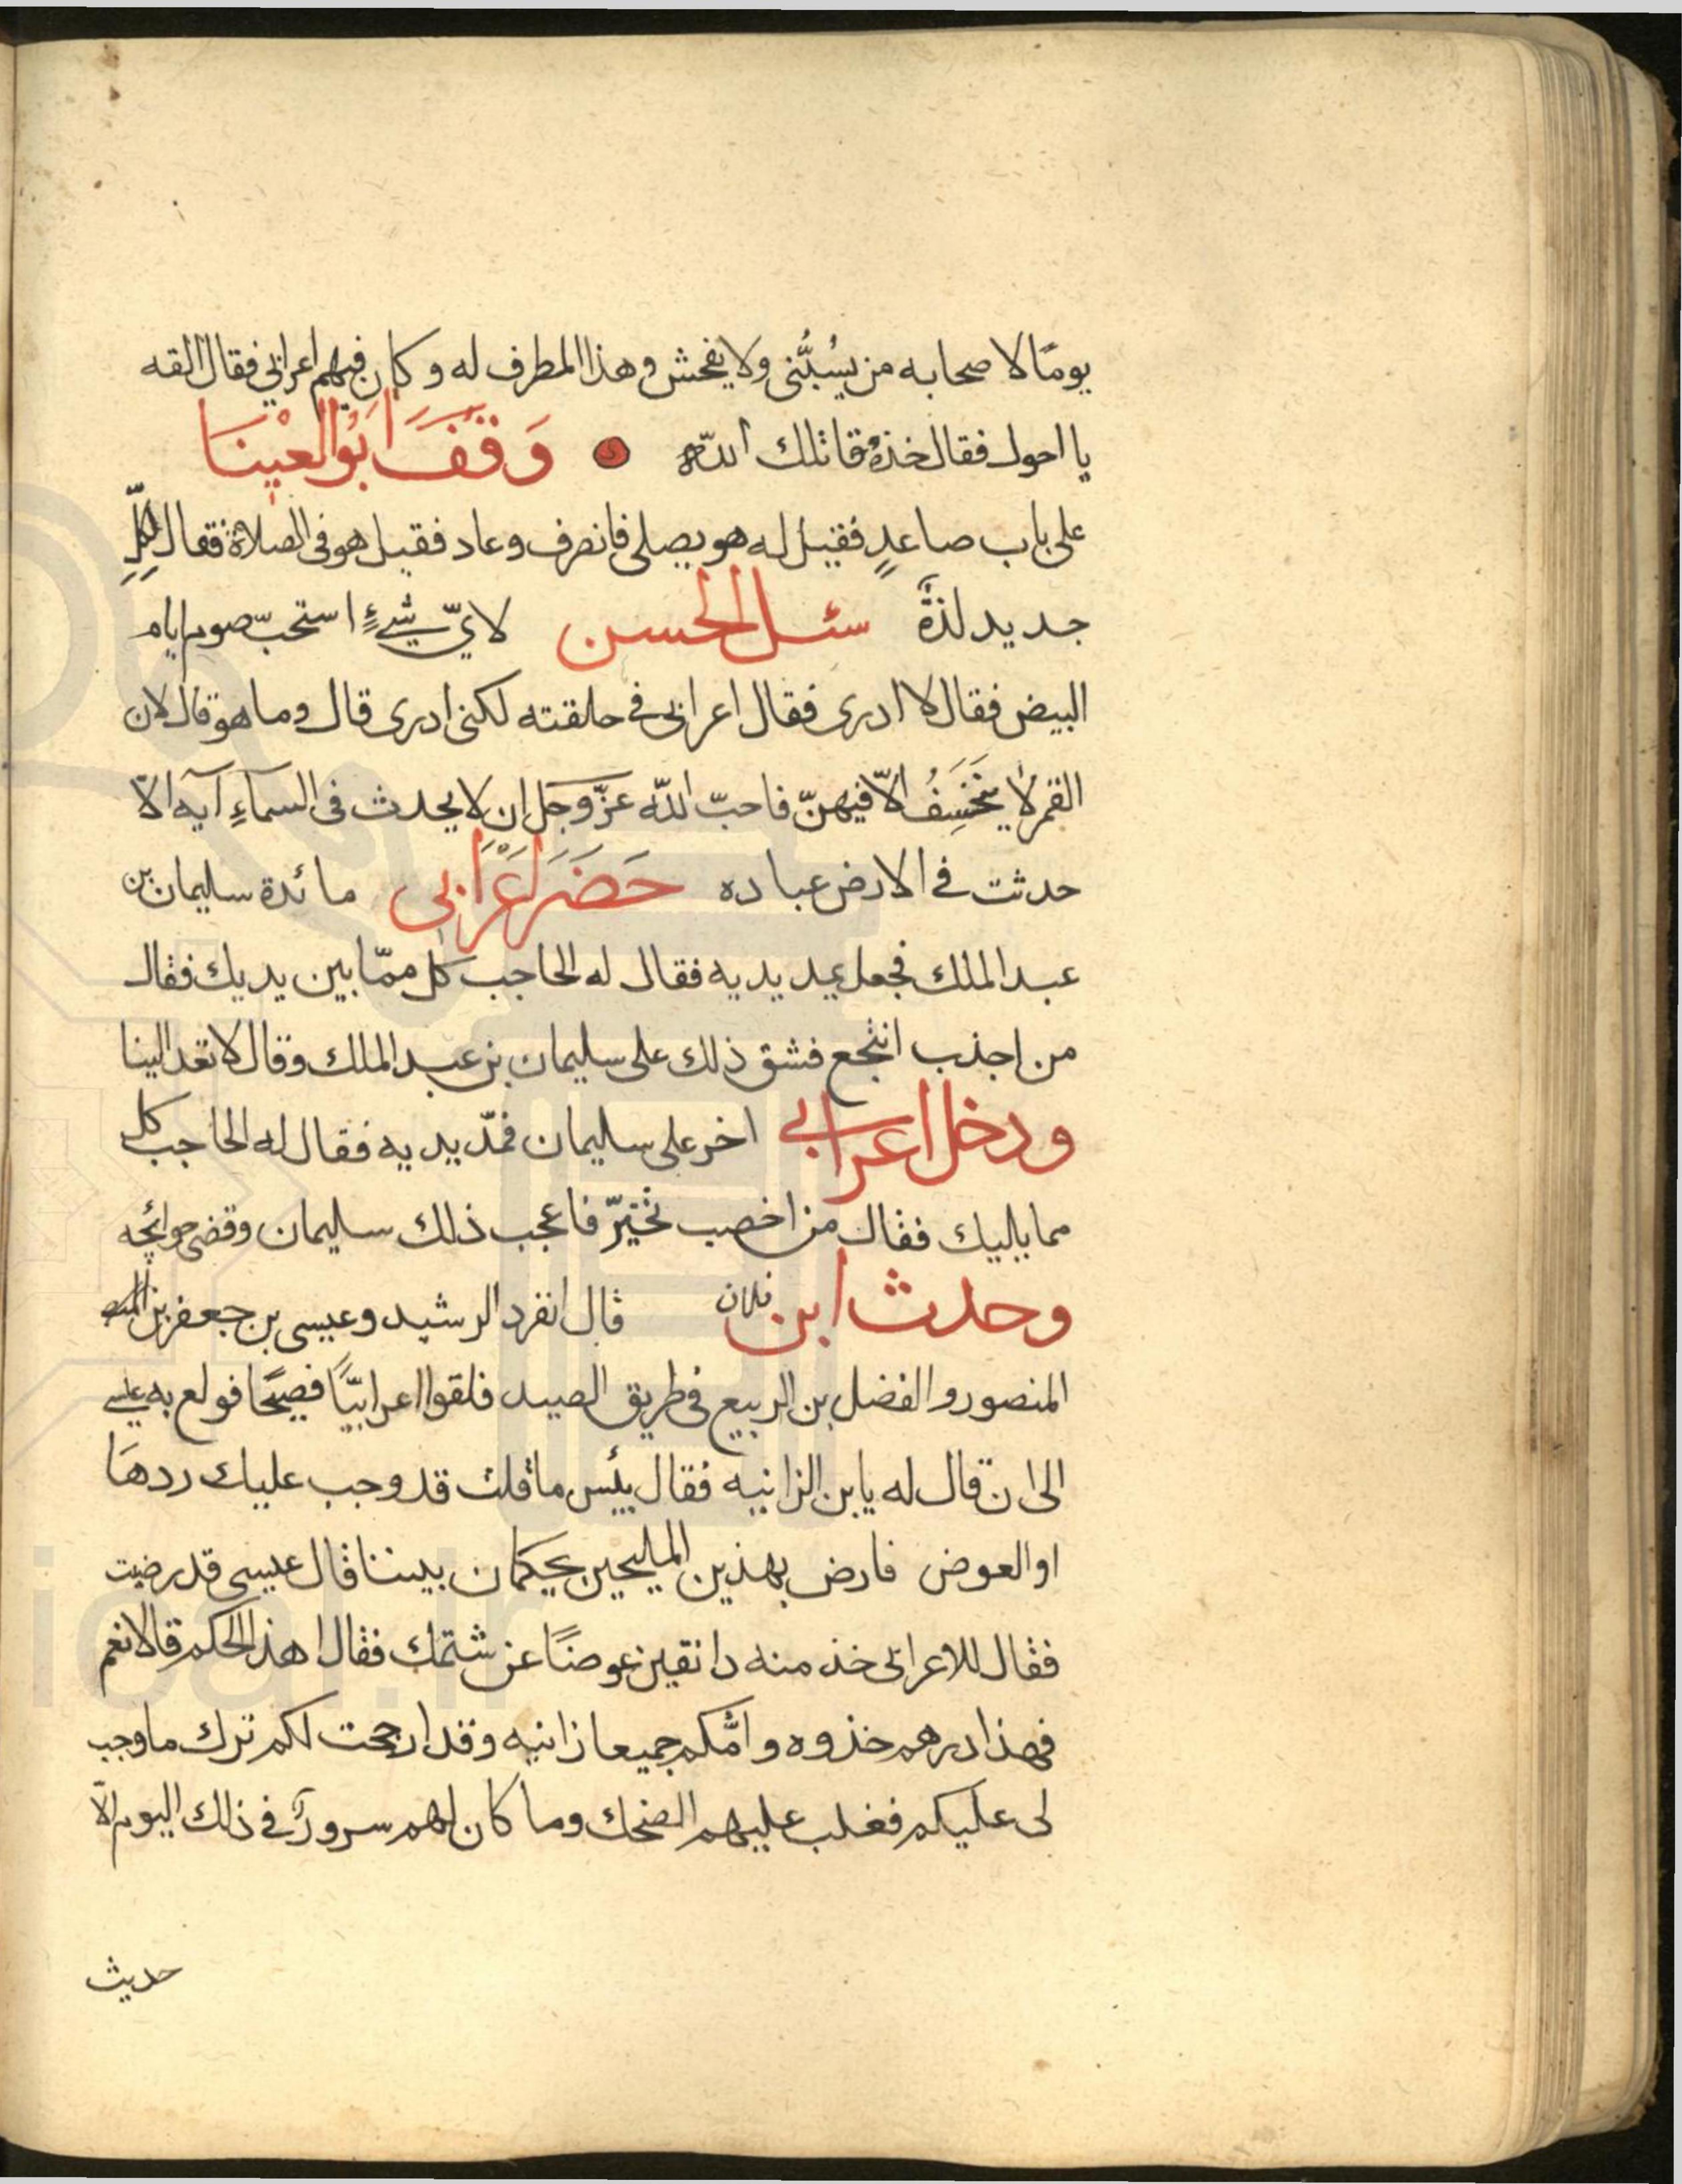 يومًا لاصحابه من يسُبُّنى ولا يفحش وهذا المطرف له وكان فيهم اعرابي فقال القه
يا احول فقال خذهُ قاتلك اللّه وَقَفَ ابَوُالعيْنَا
على باب صاعدٍ فقيل له هو يصلى فانصرف وعاد فقيل هو فى الصلاة فقال لكلِّ
جديد لذةً سئل الحسن لايّ شيءٍ استحبّ صوم ايام
البيض فقال لا ادرى فقال اعرابى في حلقته لكنى ادرى قال وما هو قال لان
القمر لا يَنخَسِفُ الاّ فيهنّ فاحبّ اللّه عزّ وجل ان لا يحدث فى السماءِ آيه الاّ
حدثت في الارض عباده حَضَرَ اَعْرَابى مائدة سليمان بن
عبد الملك فجعل يمد يديه فقال له الحاجب كل ممّا بين يديك فقال
من اجذب انتجع فشق ذلك على سليمان بن عبد الملك وقال لا تعد الينا
ودخل اعرابي اخر على سليمان فمدّ يديه فقال له الحاجب كل
مما يليك فقال من اخصب تخيّر فاعجب ذلك سليمان وقضى حوائجه
وحدث ابن فلان قال انفرد الرشيد وعيسى بن جعفر بن
المنصور والفضل بن الربيع فى طريق الصيد فلقوا اعرابيّاً فصيحًا فولع به عيسى
الى ان قال له يا بن الزانيه فقال بئس ما قلت قد وجب عليك ردهَا
او العوض فارض بهذين المليحين يحكمان بيننا قال عيسى قد رضيت
فقال للاعرابى خذ منه دانقين عوضًا عن شتمك فقال اهذا الحكم قالا نعم
فهذا درهم خذوه وامّكم جميعا زانيه وقد ارجحت لكم ترك ما وجب
لى عليكم فغلب عليهم الضحك وما كان لهم سرورٌ في ذلك اليوم الاّ
حديث